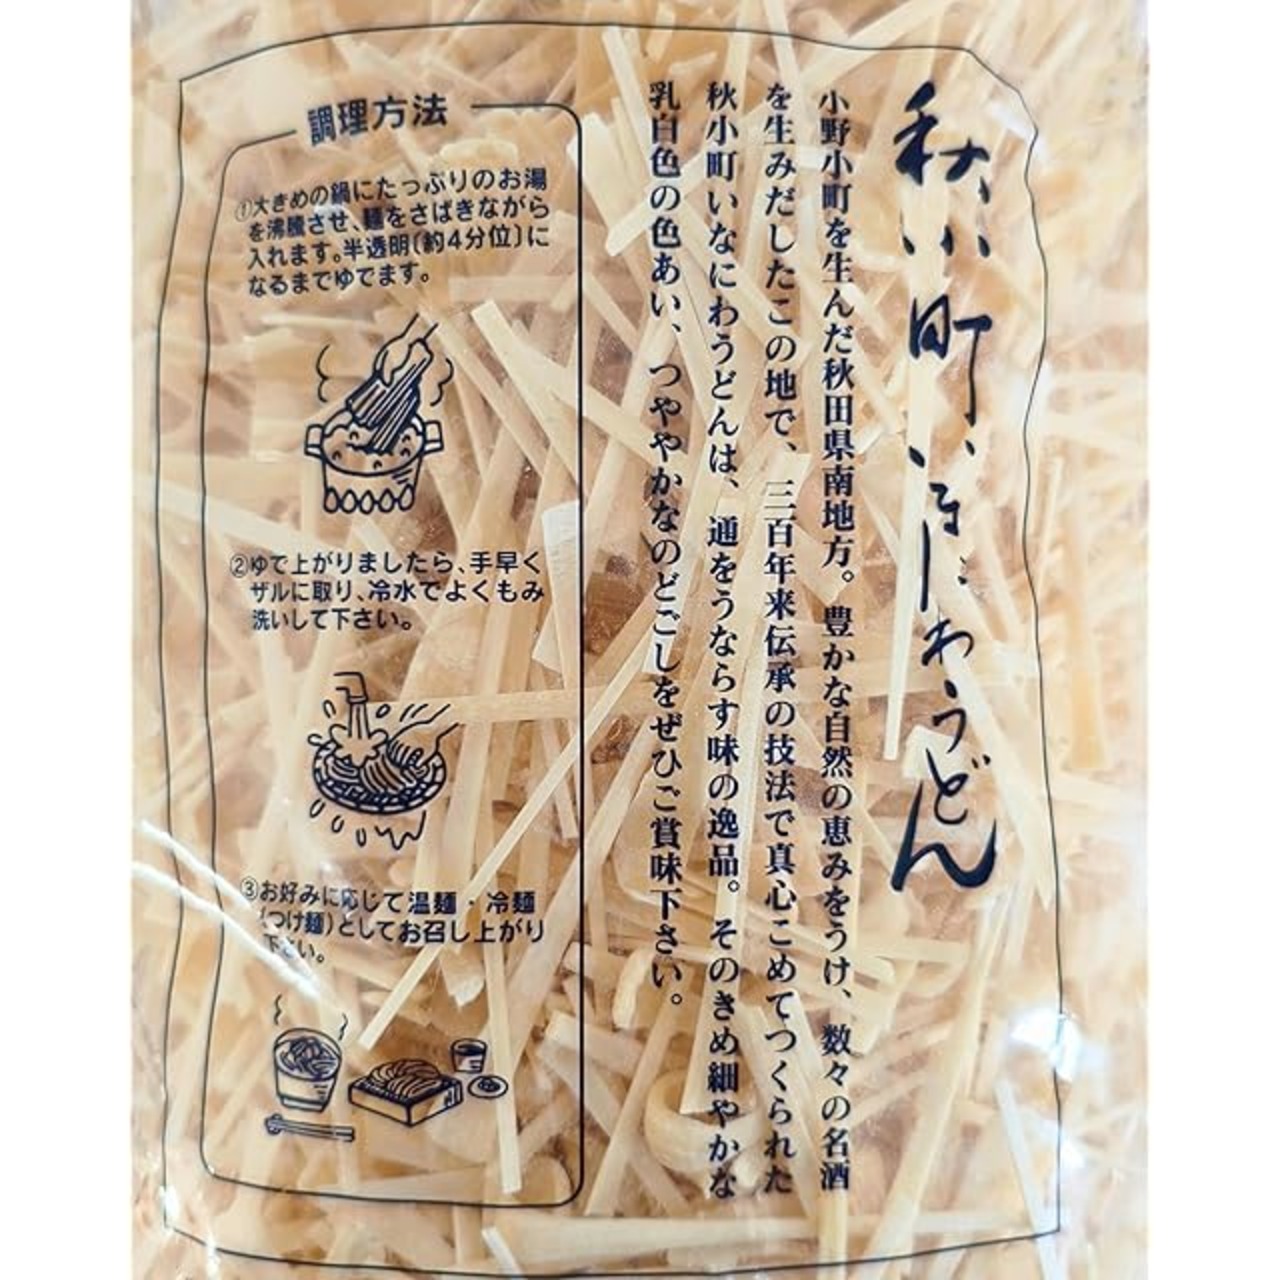 秋小町いなにわうどん
小野小町を生んだ秋田県南地方。豊かな自然の恵みをうけ、数々の名酒
を生みだしたこの地で、三百年来伝承の技法で真心こめてつくられた
秋小町いなにわうどんは、通をうならす味の逸品。そのきめ細やかな
乳白色の色あい、つややかなのどごしをぜひご賞味下さい。
調理方法
①大きめの鍋にたっぷりのお湯
を沸騰させ、麺をさばきながら
入れます。半透明〔約4分位〕に
なるまでゆでます。
②ゆで上がりましたら、手早く
ザルに取り、冷水でよくもみ
洗いして下さい。
③お好みに応じて温麺・冷麺
(つけ麺)としてお召し上がり
下さい。